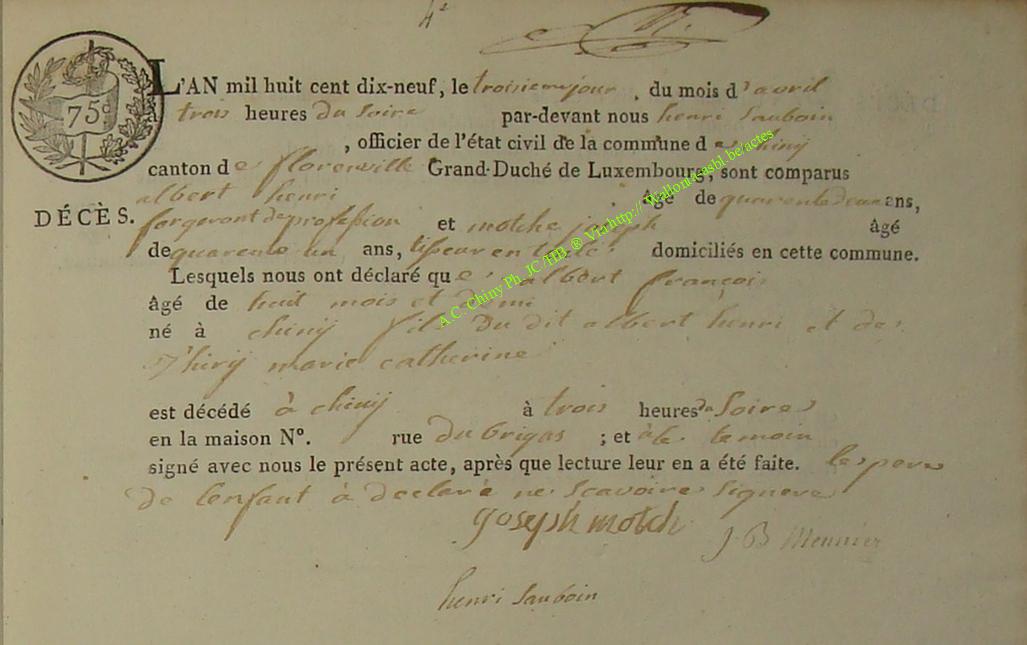 4e
75 c
L'AN mil huit cent dix-neuf, le troisiem jour, du mois d'avril
trois heures du Soire par-devant nous henri Sauboin
, officier de l'état civil de la commune de chinij
canton de florenville Grand-Duché de Luxembourg, sont comparus
albert henri, âgé de quarente deux ans,
DÉCÈS.
forgeront de profession et motche joseph âgé
de quarente un ans, domiciliés en cette commune.
Lesquels nous ont déclaré que albert françois
âgé de huit mois et demi
né à chinij fils du dit albert henri et de
Thirij marie catherine
est décédé à chinij à trois heures du Soire
en la maison N°. rue du Brigas ; et à le temoin
signé avec nous le présent acte, après que lecture leur en a été faite. les pere
de lenfant à declaré ne scavoire signere
goseph motch
J-B Meunier
henri Sauboin
A.C. Chiny Ph. JC /HB ® Via http:// Wallonia.asbl.be/actes